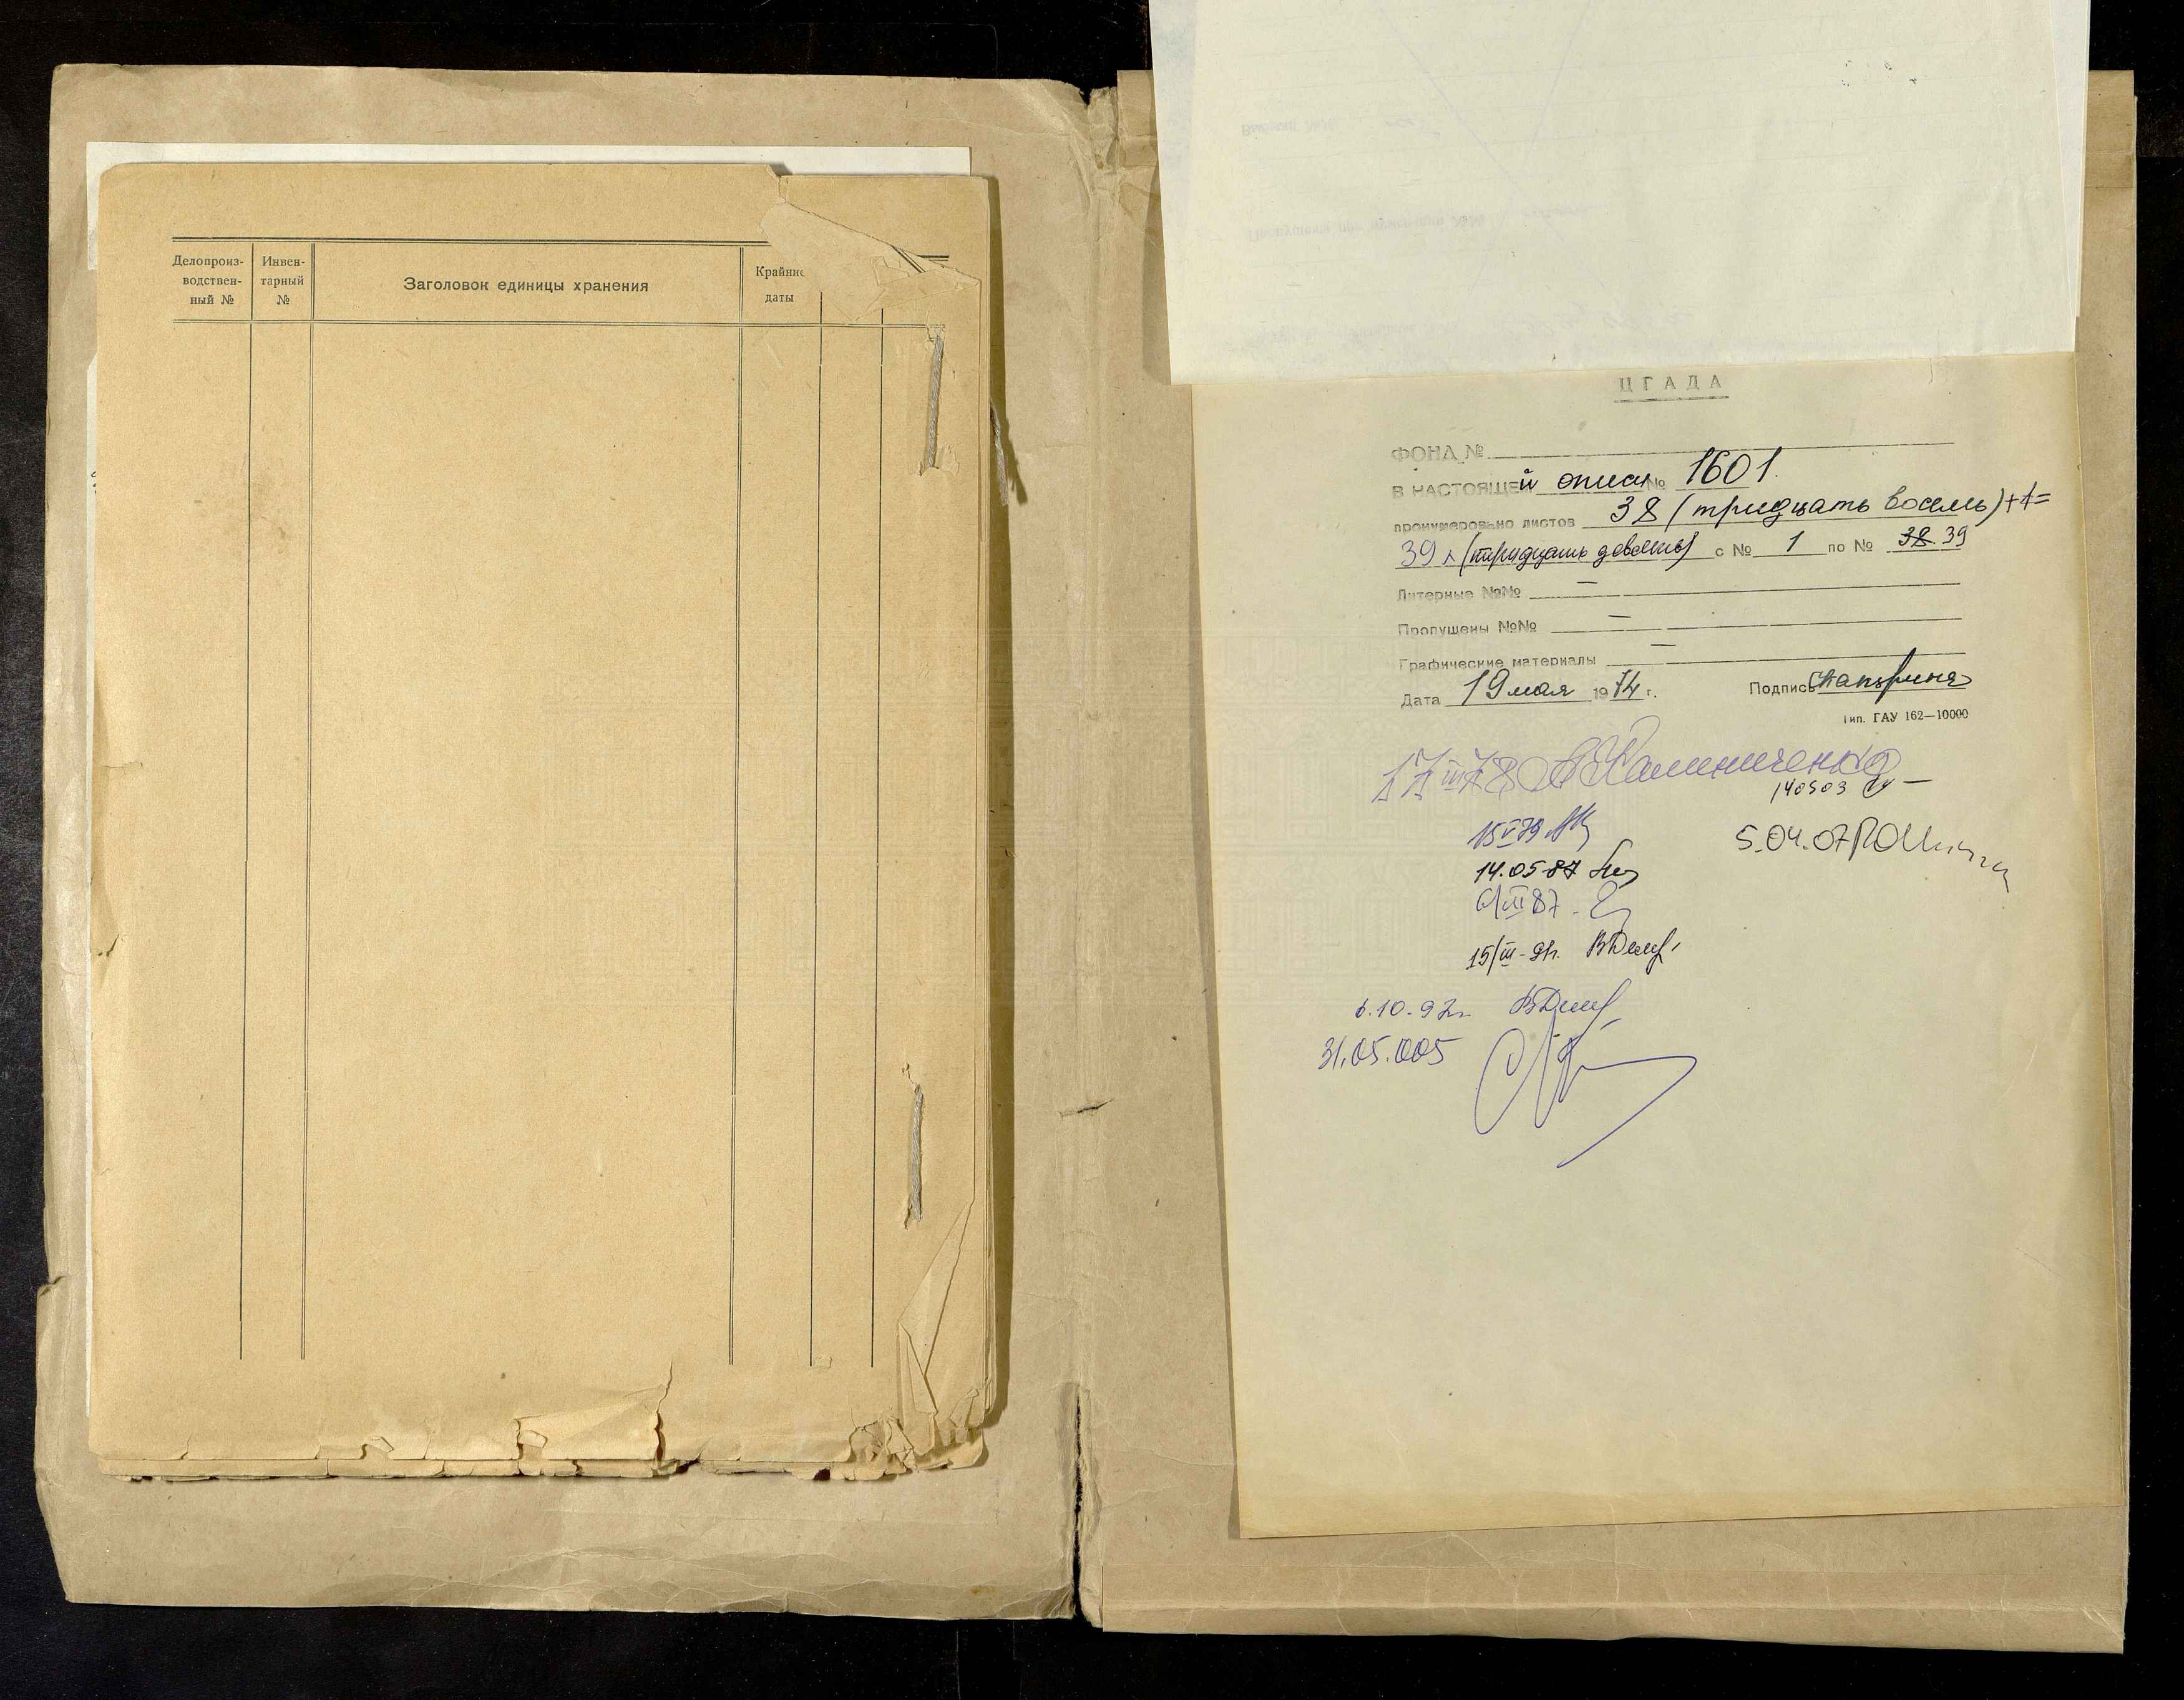 Делопроиз-
водствен-
ный №
Инвен-
тарный
№
Заголовок единицы хранения
Крайние
даты
ЦГАДА
ФОНД №
В НАСТОЯЩЕй описи № 1601.
пронумеровано листов 38 (тридцать восемь) +1=
39 л (тридцать девять) с № 1 по № 38. 39
Литерные №№ —
Пропущены №№ —
Графические материалы —
Дата 19 мая 1974 г. Подпись
Тип. ГАУ 162—10000
17 III 78 Калиниченко
140503
15 V 79
5.04.07
14.05.87
III 87
15/III-
6.10.92г.
31.05.005